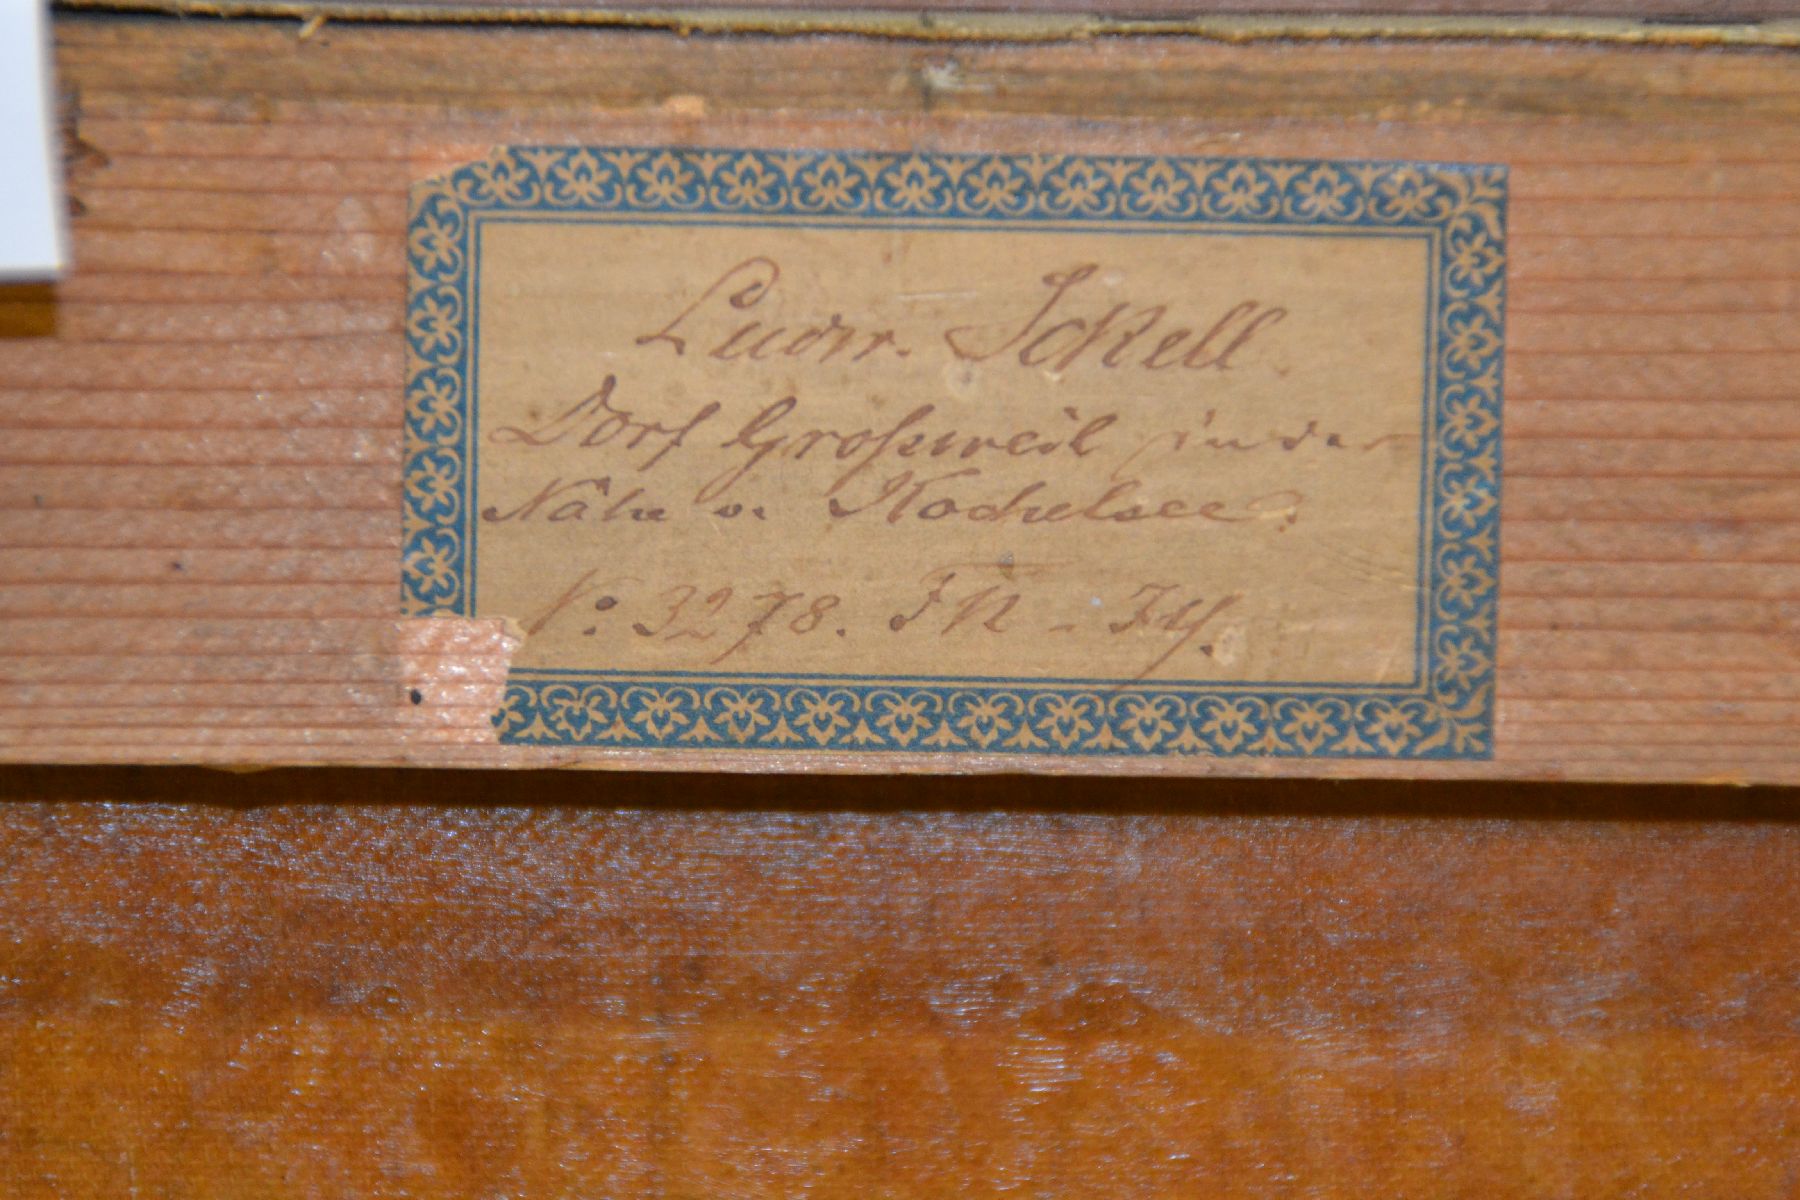 Ludw. Sckell
Dorf Großweil in der
Nähe v. Kochelsee.
No. 3278.